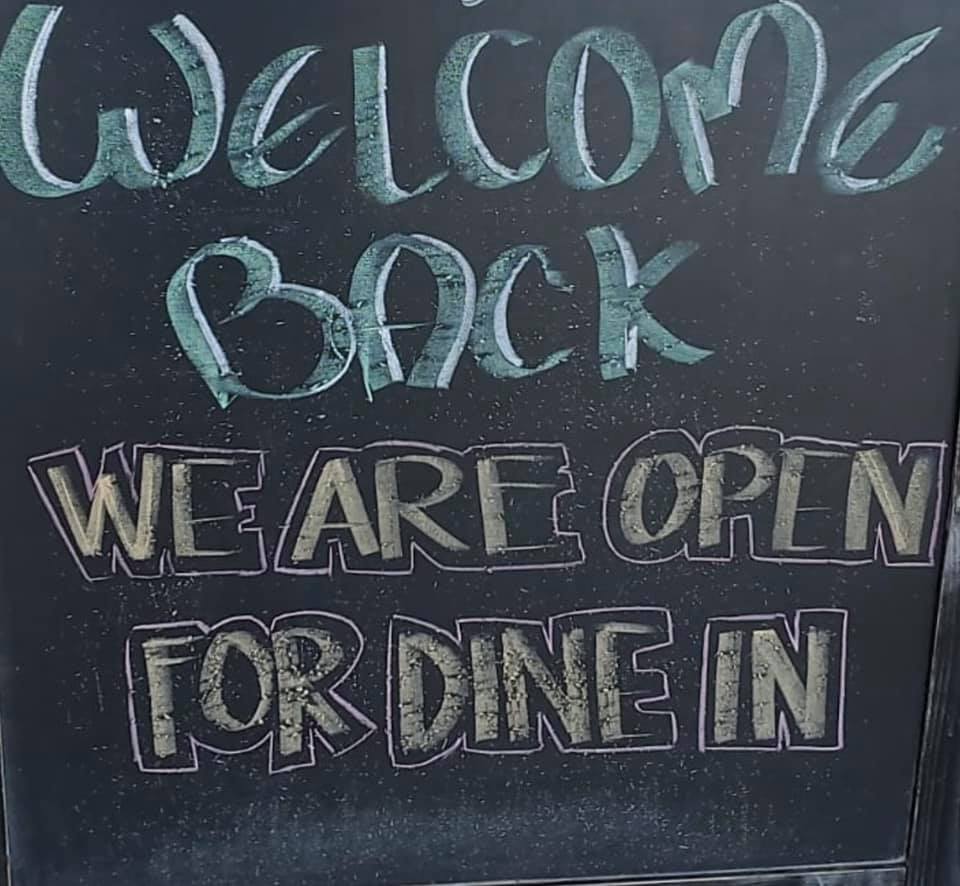 WELCOME
BACK
WE ARE OPEN
FOR DINE IN